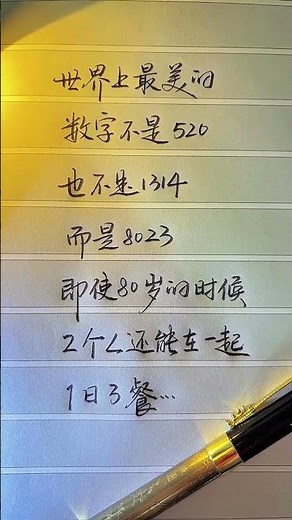 世界上最美的
数字不是520
也不是1314
而是8023
即使80岁的时候
2个人还能在一起
1日3餐…